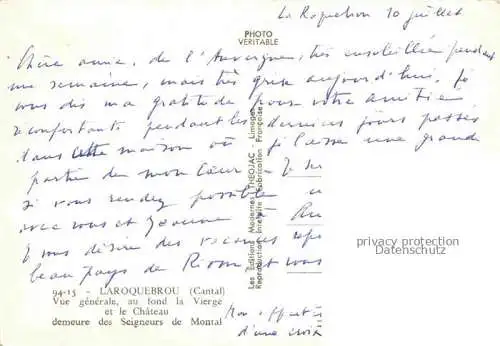 La Roquebrou 10 juillet
PHOTO
VERITABLE
Chère amie, de l'Auvergne, très ensoleillée pendant
une semaine, mais très grise aujourd'hui, je
vous dis ma gratitude pour votre amitié
réconfortante pendant les derniers jours passés
dans cette maison où je laisse une grande
partie de mon cœur
si vous rendez possible
avec vous et
vous désire des vacances
beau pays de Riom et vous
Les Editions Modernes THEOJAC - Limoges
Reproduction Interdite - Fabrication Française
privacy protection
Datenschutz
94-15 - LAROQUEBROU (Cantal)
Vue générale, au fond la Vierge
et le Château
demeure des Seigneurs de Montal
d'une